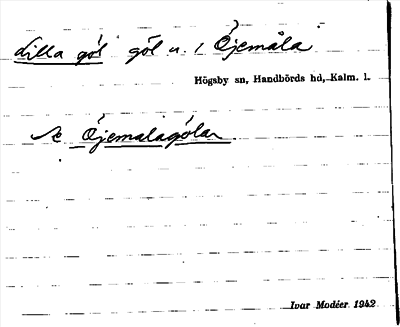 Lilla göl göl u. / Öjemåla
Högsby sn, Handbörds hd, Kalm. l.
Se Öjemålagölar
Ivar Modéer 1942